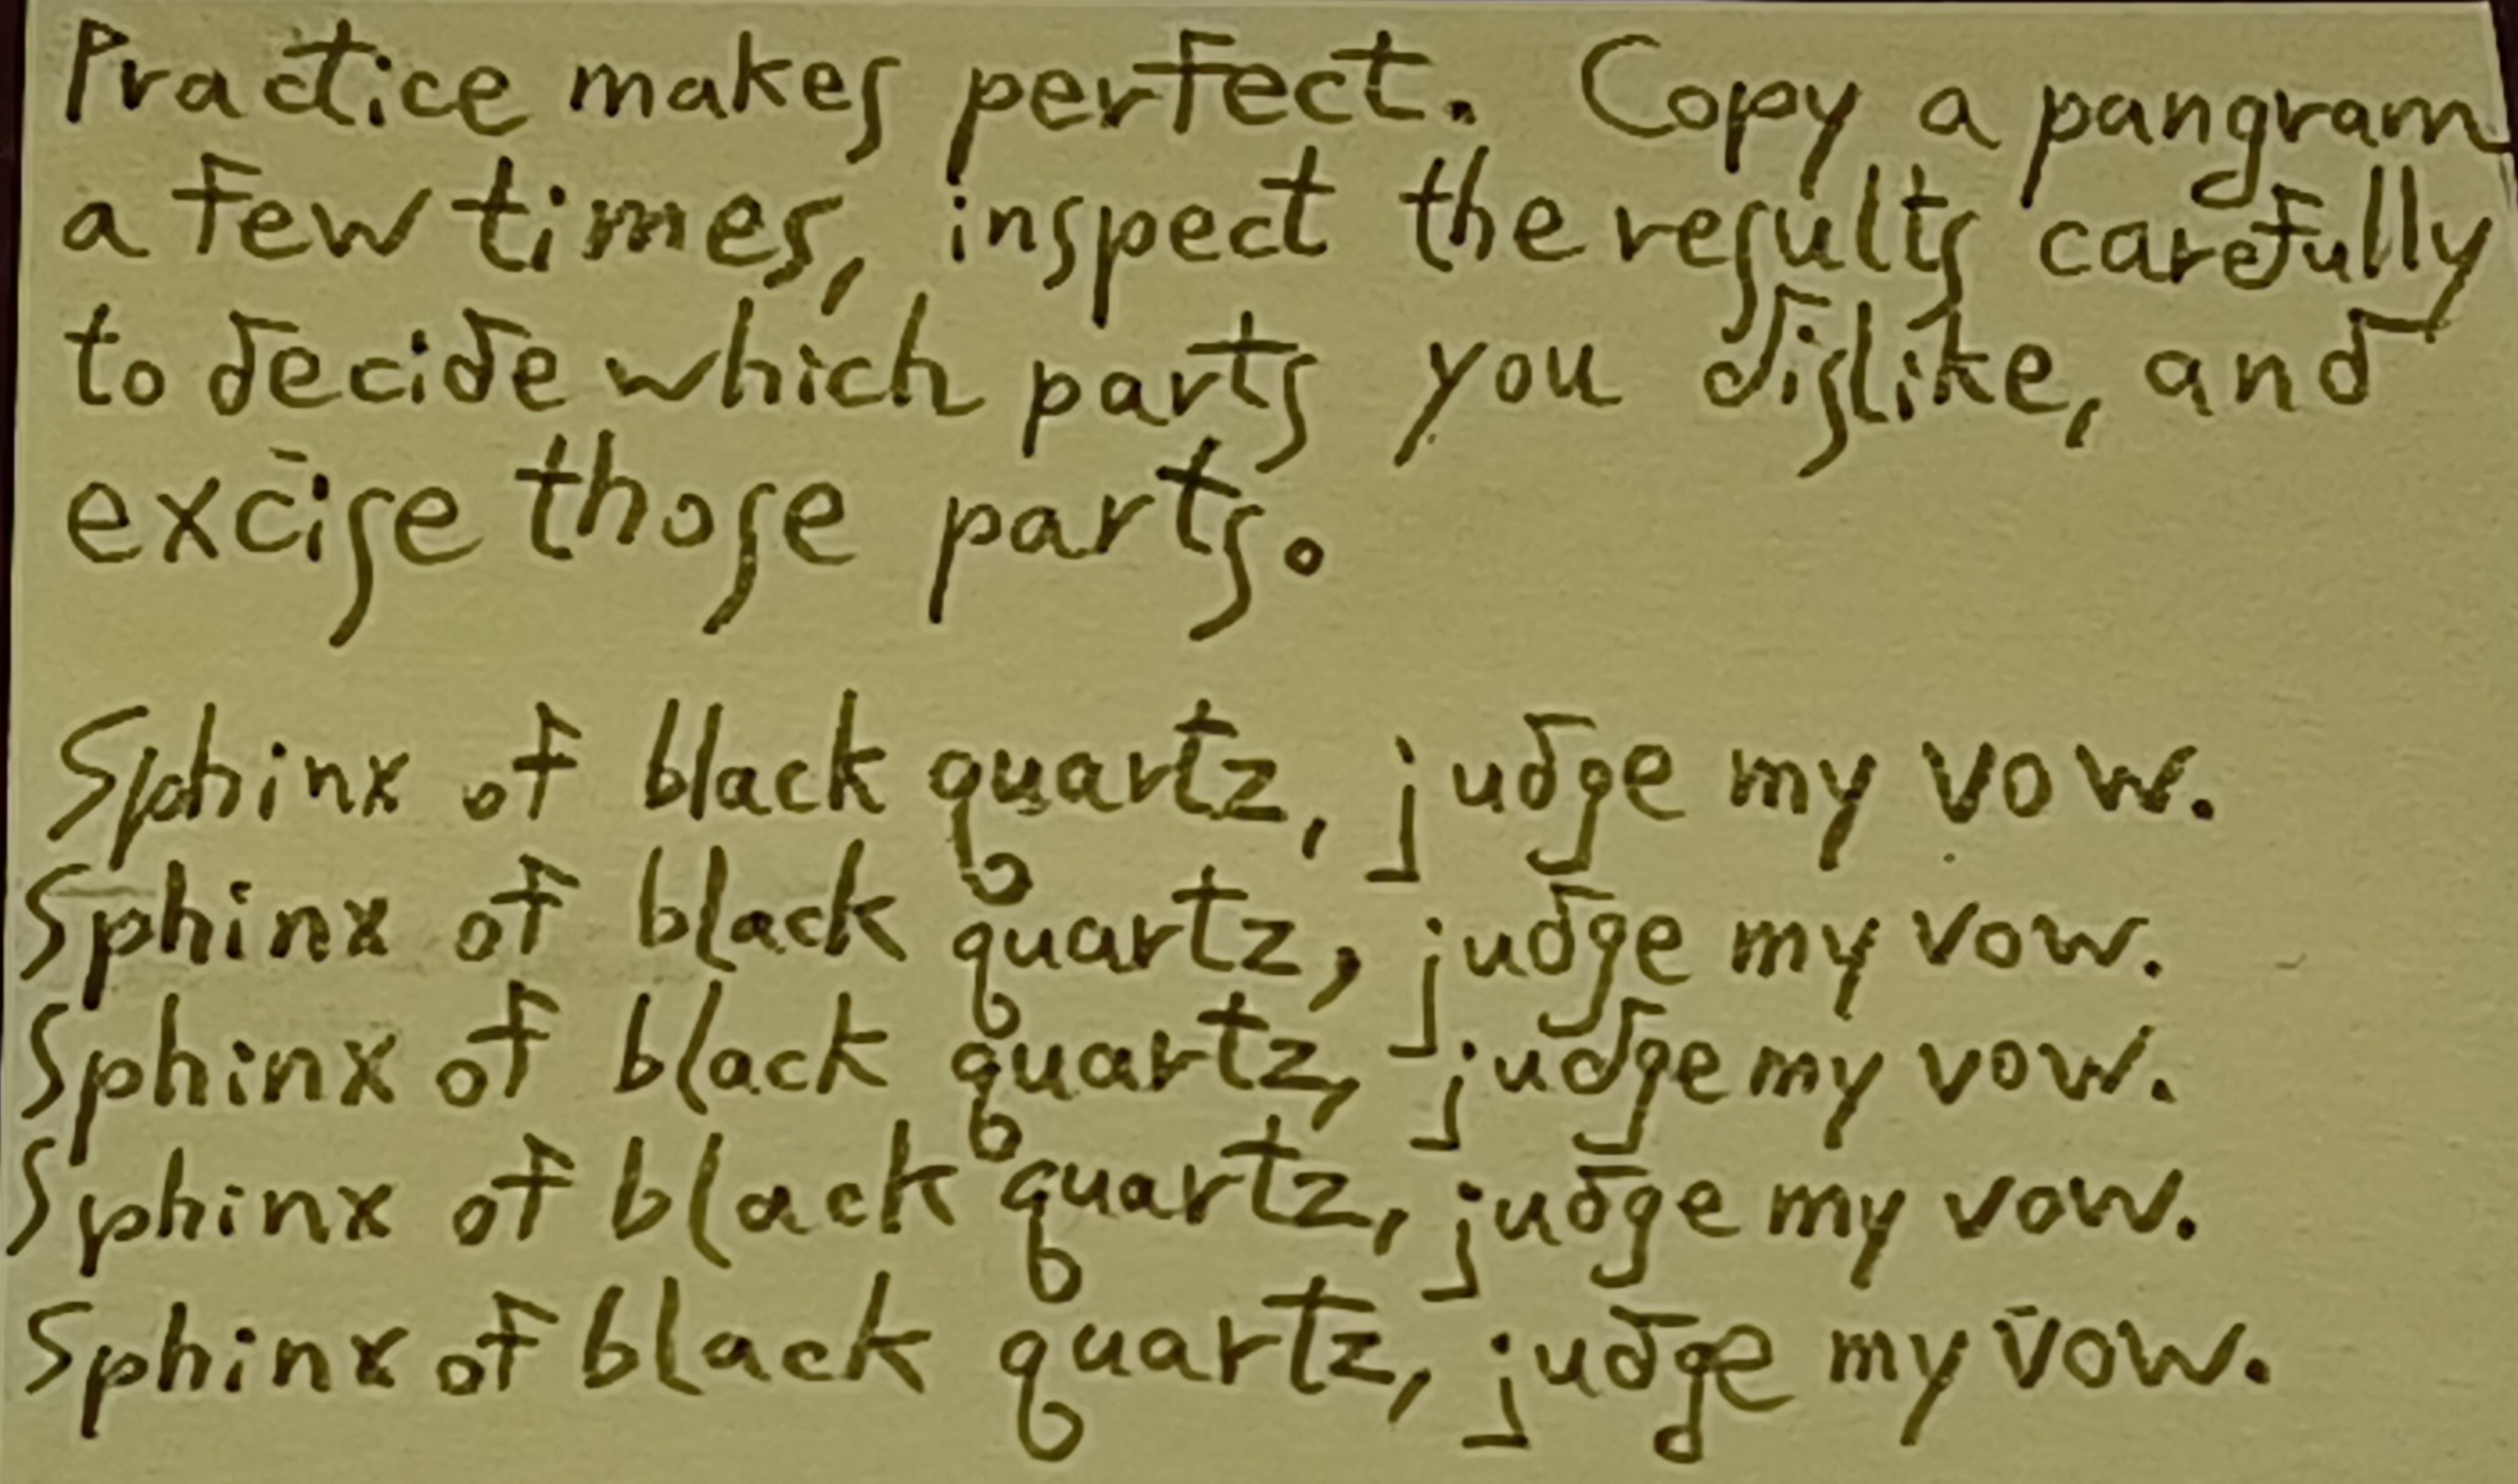 Practice makes perfect. Copy a pangram
a few times, inspect the results carefully
to decide which parts you dislike, and
excise those parts.
Sphinx of black quartz, judge my vow.
Sphinx of black quartz, judge my vow.
Sphinx of black quartz, judge my vow.
Sphinx of black quartz, judge my vow.
Sphinx of black quartz, judge my vow.